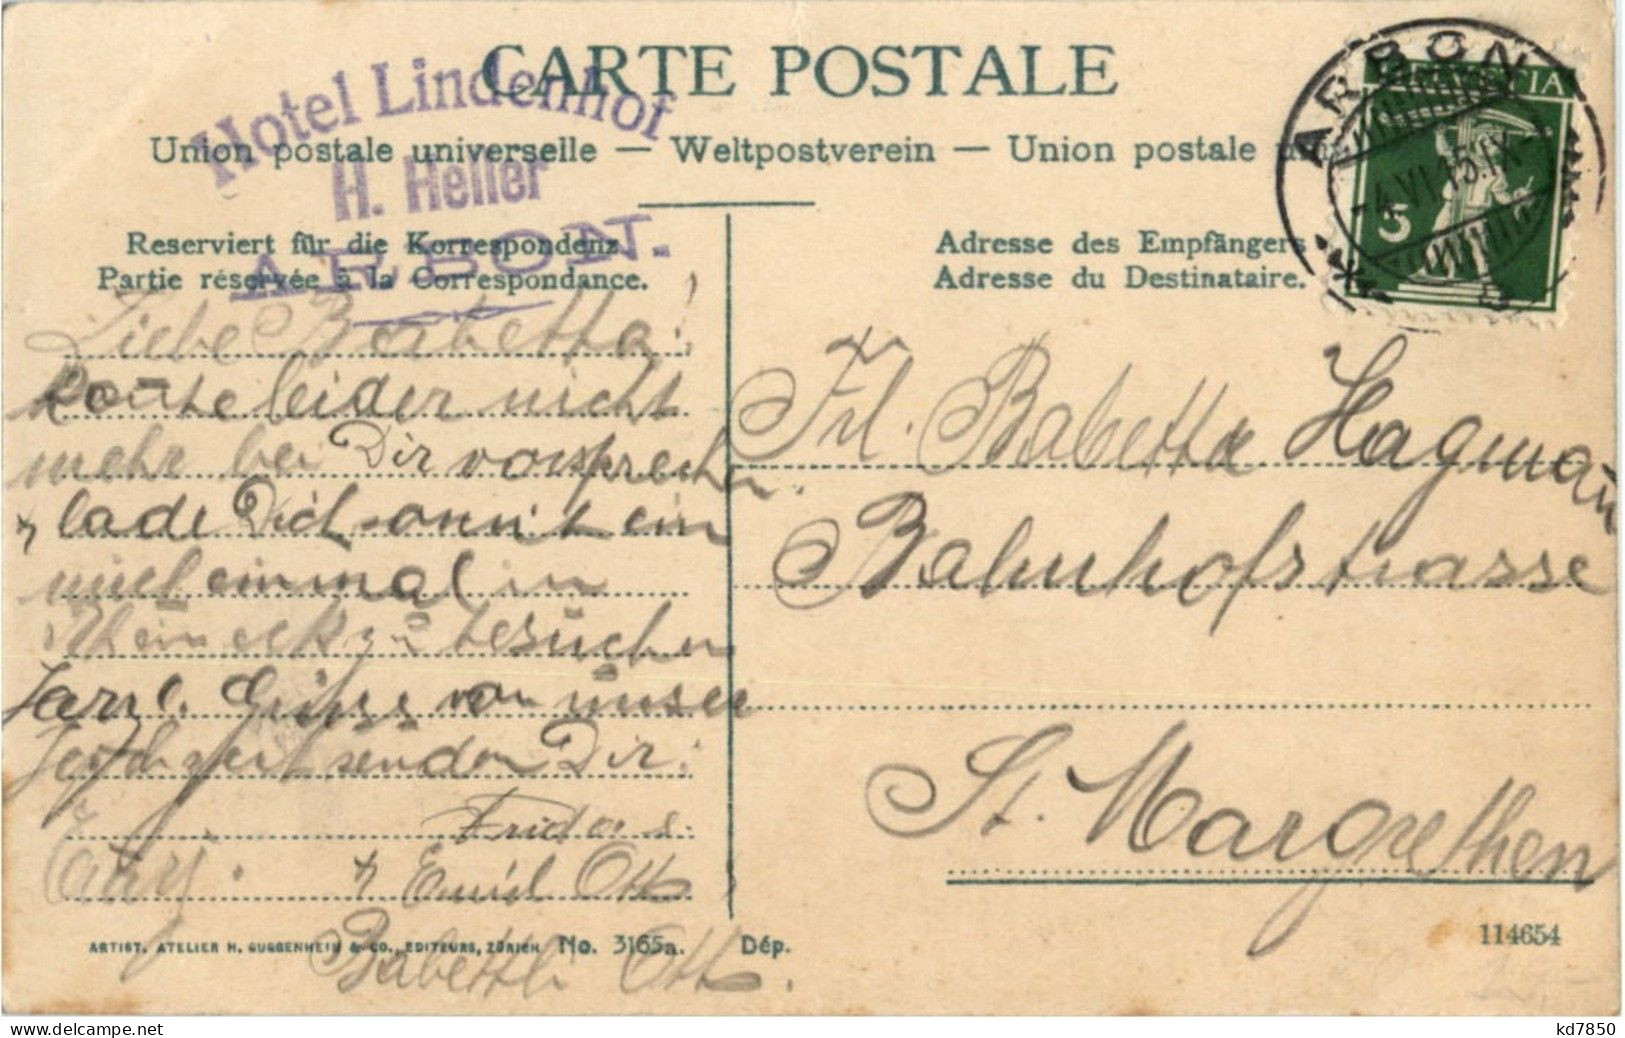 CARTE POSTALE
Hotel Lindenhof
H. Heller
ARBON.
Union postale universelle — Weltpostverein — Union postale
ARBON
HELVETIA
-4.VI.15.IX-
5
Reserviert für die Korrespondenz
Partie réservée à la Correspondance.
Adresse des Empfängers
Adresse du Destinataire.
Liebe Barbetta!
konnte leider nicht
mehr bei Dir vorsprech
en.
& lade Dich somit ein
mich einmal in
Rheineck zu besuchen
Grüsse von unser
senden Dir:
Frida &
& Emil Otto
Babettli Otto.
Frl. Babetta Hagmann
Bahnhofstrasse
St. Margrethen
ARTIST. ATELIER H. GUGGENHEIM & CO., EDITEURS, ZÜRICH No. 3165a. Dép.
114654
kd7850